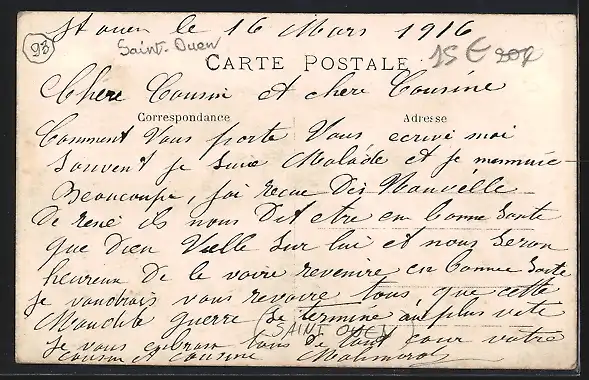 St ouen le 16 Mars 1916
93
Saint-Ouen
15 €
CARTE POSTALE
Chere Cousin et chere Cousine
Correspondance
Adresse
Comment Vous porte Vous ecrive moi
souvent je suie Malade et je mennuie
Beaucoupe, jai recue Des Nouvelle
De rené ils nous Dit etre en bonne sante
que Dieu Vielle sur lui et nous seron
heureux de le voire revenire en bonne sante
je voudrais vous revoire tous, que cette
Maudite guerre se termine au plus vite
SAINT OUEN
Je vous embrasse tous de tout cour votre
cousin et cousine